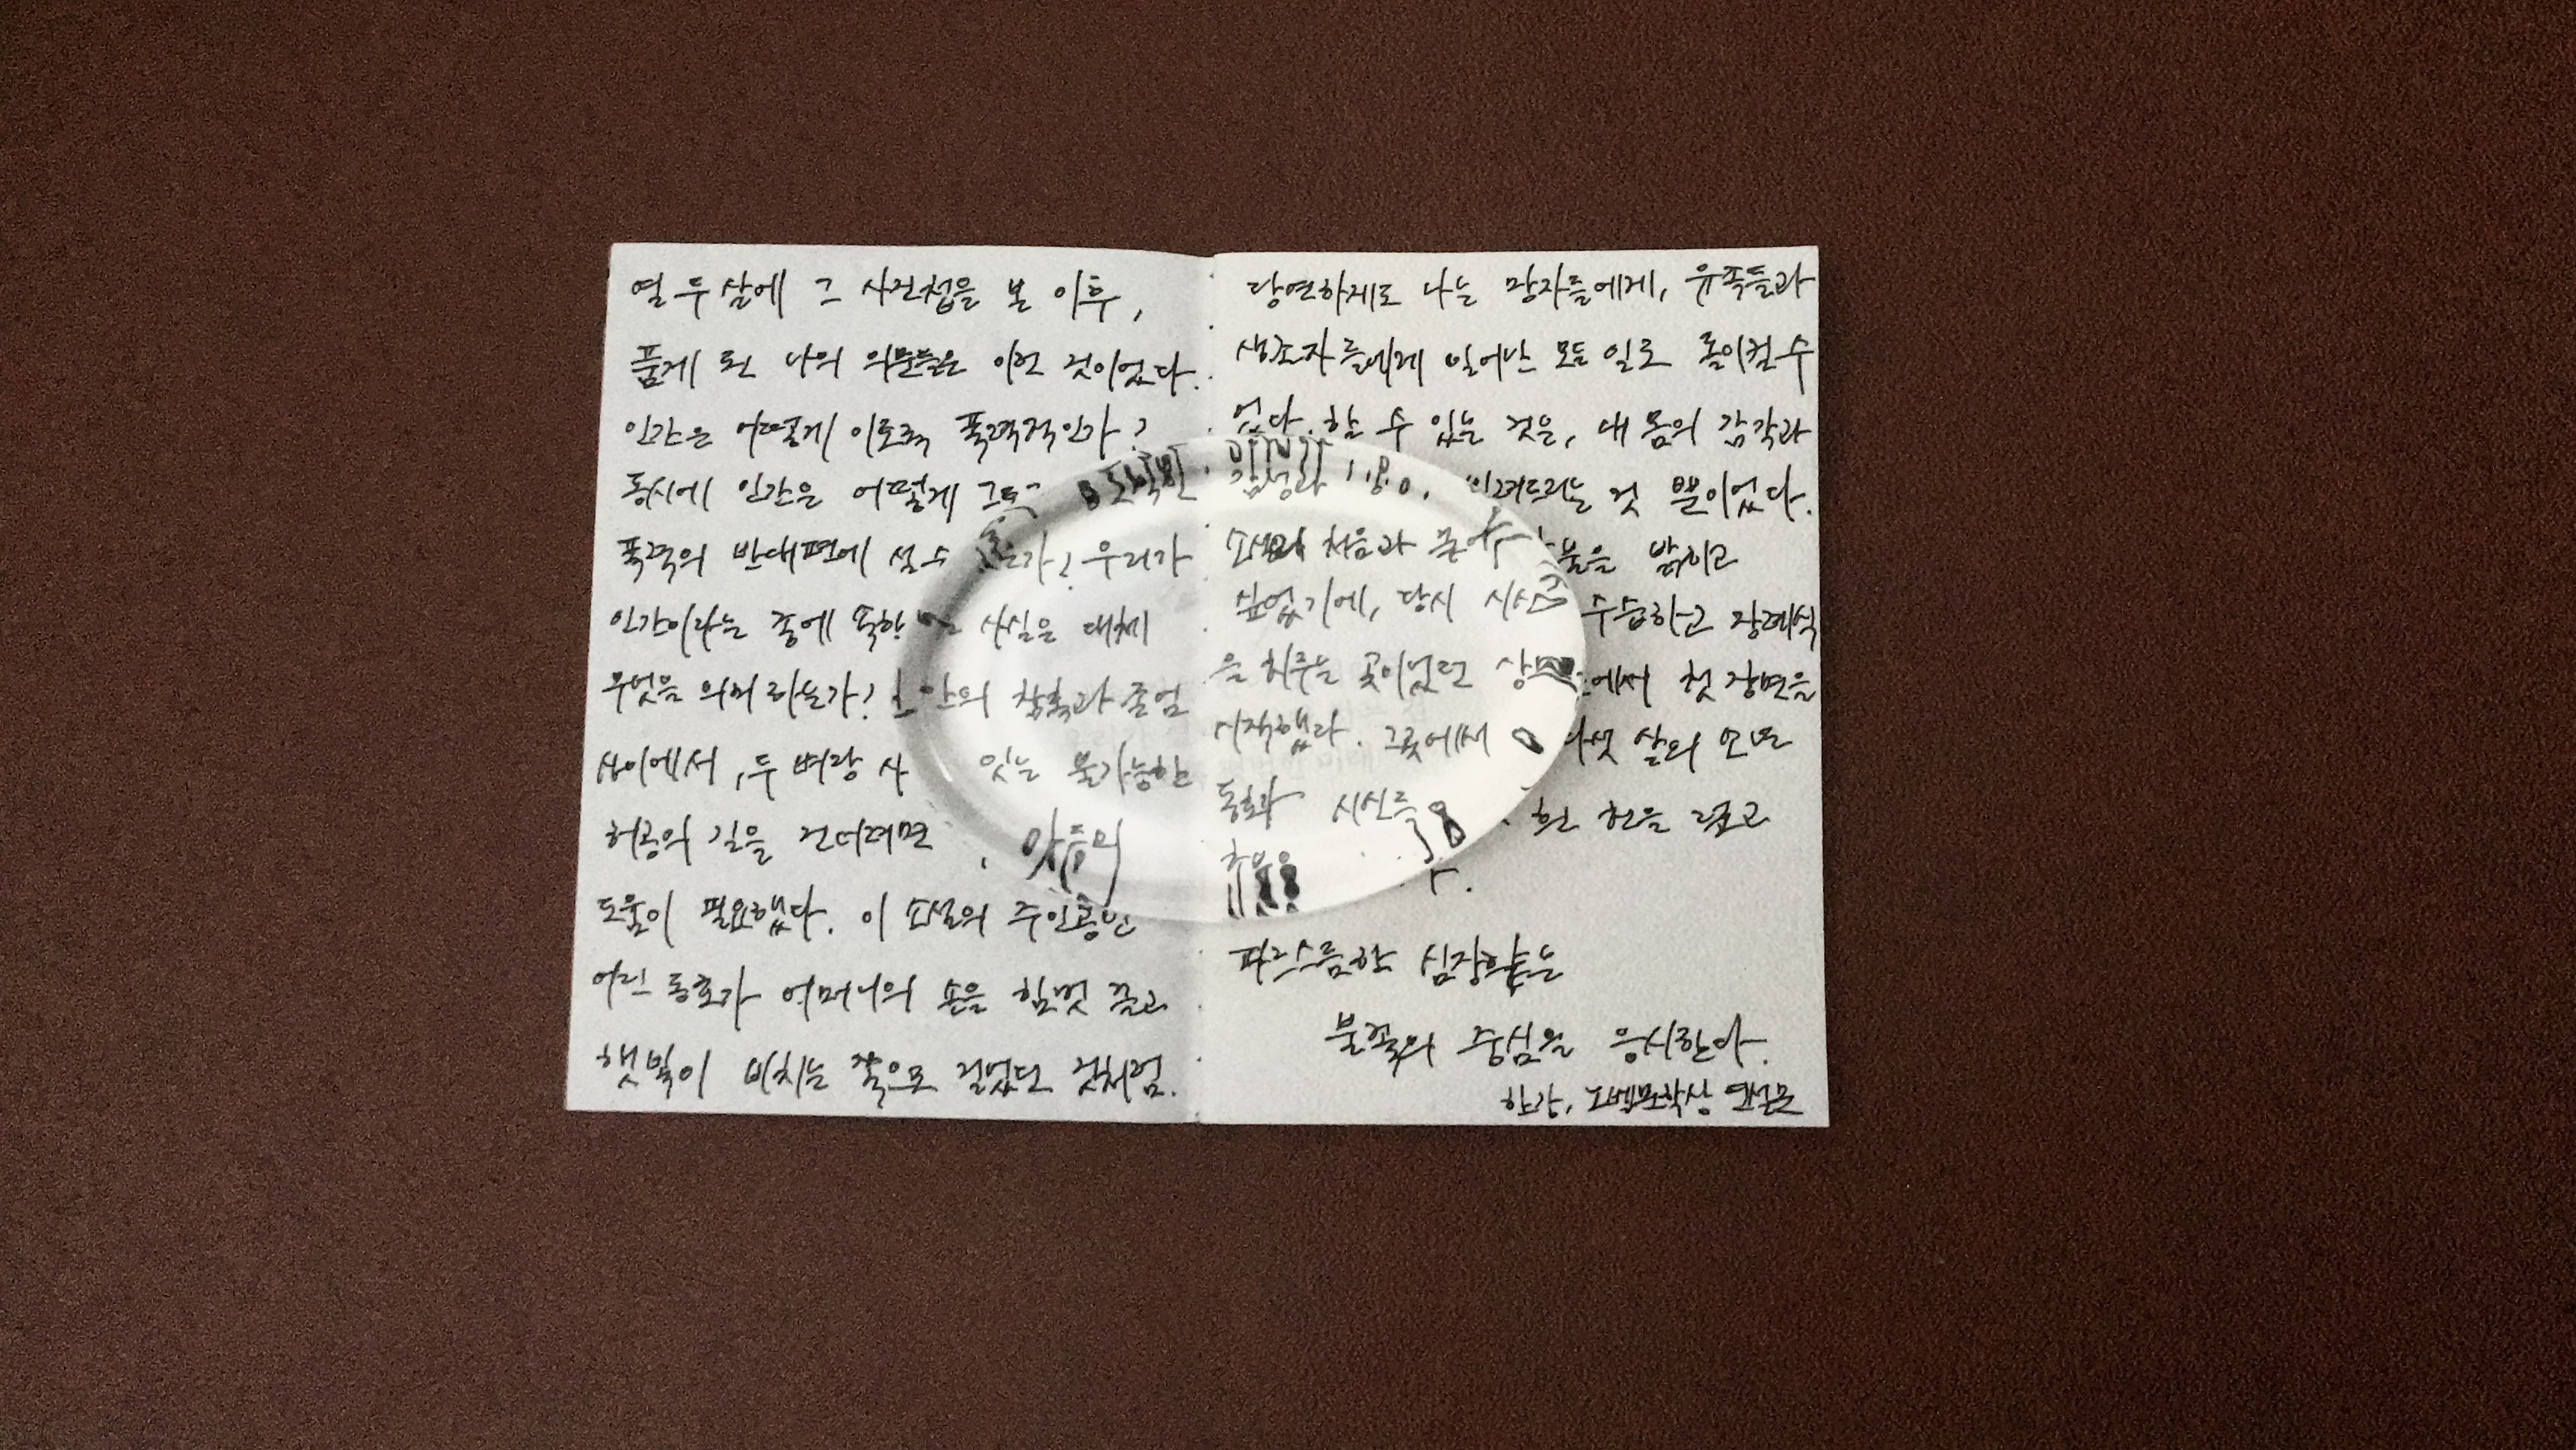 열 두 살에 그 사진첩을 본 이후,
품게 된 나의 의문들은 이런 것이었다.
인간은 어떻게 이토록 폭력적인가?
동시에 인간은 어떻게
폭력의 반대편에 설 수 는가? 우리가
인간이라는 종에 속한 사실은 대체
무엇을 의미하는가? 인간의 참혹과 존엄
사이에서, 두 벼랑 사 잇는 불가능한
허공의 길을 건너려면
도움이 필요했다. 이 소설의 주인공인
어린 동호가 어머니의 손을 힘껏 끌고
햇빛이 비치는 쪽으로 걸었던 것처럼.
당연하게도 나는 망자들에게, 유족들과
생존자들에게 일어난 모든 일도 돌이킬 수
없다. 할 수 있는 것은, 내 몸의 감각과
감정과 빌려드리는 것 뿐이었다.
소설의 처음과 끝에 불을 밝히고
싶었기에, 당시 시신을 수습하고 장례식
을 치루는 곳이었던 에서 첫 장면을
시작했다. 그곳에서 다섯 살의 소년
동호가 시신들 흰 천을 덮고
촛불을
파르스름한 심장같은
불꽃의 중심을 응시한다.
한강, 노벨문학상 연설문